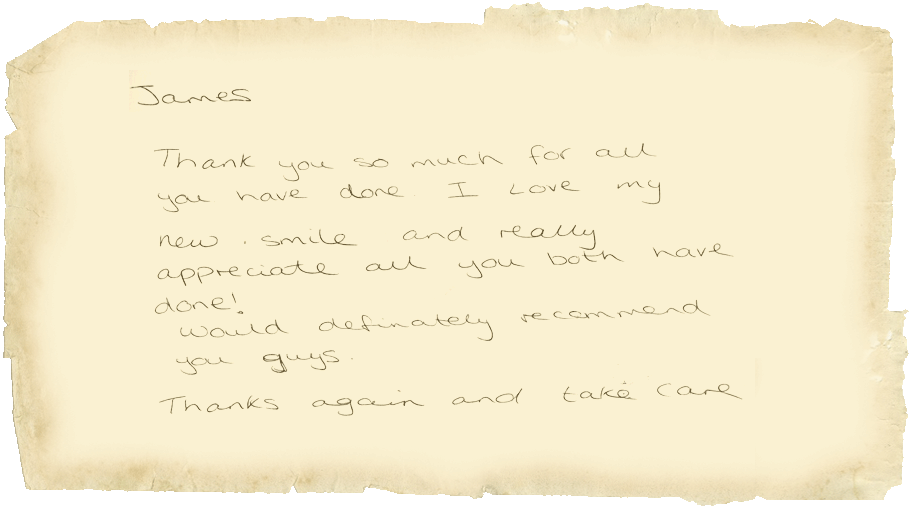 James
Thank you so much for all
you have done. I Love my
new smile and really
appreciate all you both have
done!
would definately recommend
you guys.
Thanks again and take care